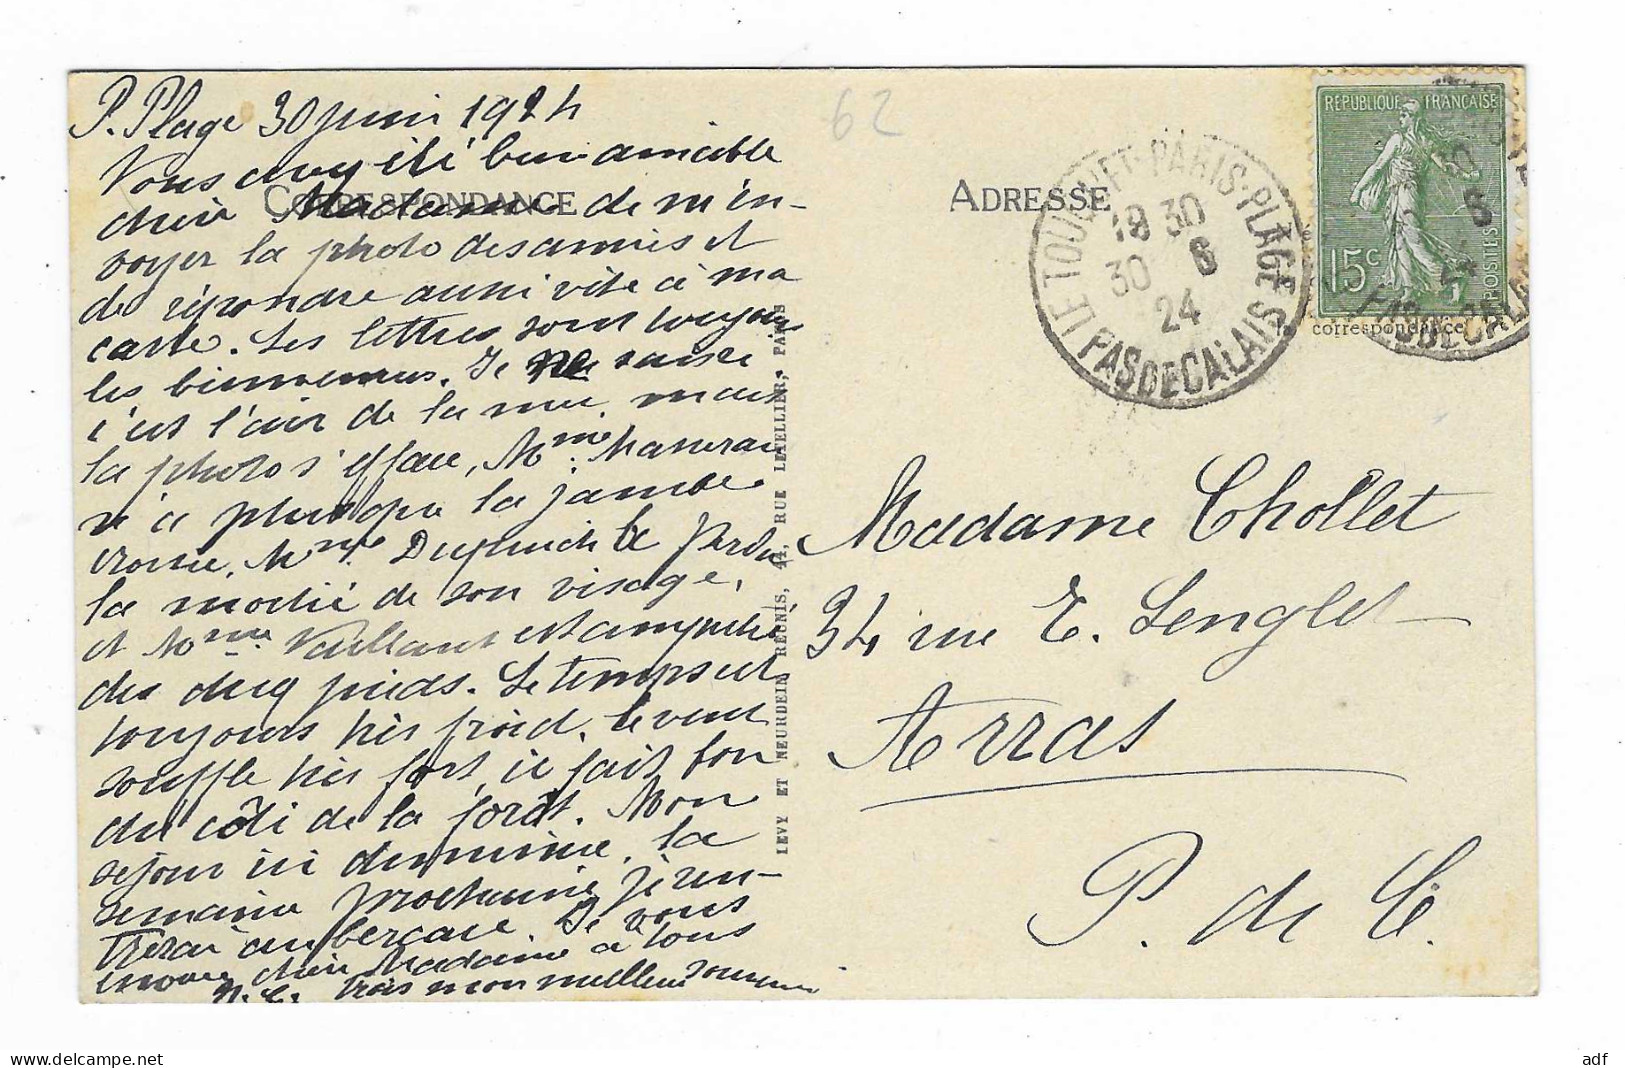 P. Plage 30 juin 1924
Vous avez été bien aimable
chère Madame de m'en-
voyer la photo des amies et
de répondre aussi vite à ma
carte. Les lettres sont toujours
les bienvenues. Je ne sais si
c'est l'air de la mer, mais
la photo s'efface, Mme
n'a plus que la jambe
droite, Mme a perdu
la moitié de son visage,
et Mme Vaillant est amputée
des deux pieds. Le temps est
toujours très froid, le vent
souffle très fort, il fait bon
du côté de la forêt. Mon
séjour ici diminue, la
semaine prochaine je ren-
trerai au bercail. Je vous
envoie chère Madame à tous
trois mon meilleur souvenir
CORRESPONDANCE
LEVY ET NEURDEIN RÉUNIS, 44, RUE LETELLIER, PARIS
62
ADRESSE
LE TOUQUET-PARIS-PLAGE
18 30
30 6
24
PAS DE CALAIS
REPUBLIQUE FRANÇAISE
15c
POSTES
correspondance
Madame Chollet
34 rue E. Lenglet
Arras
P. de C.
adf